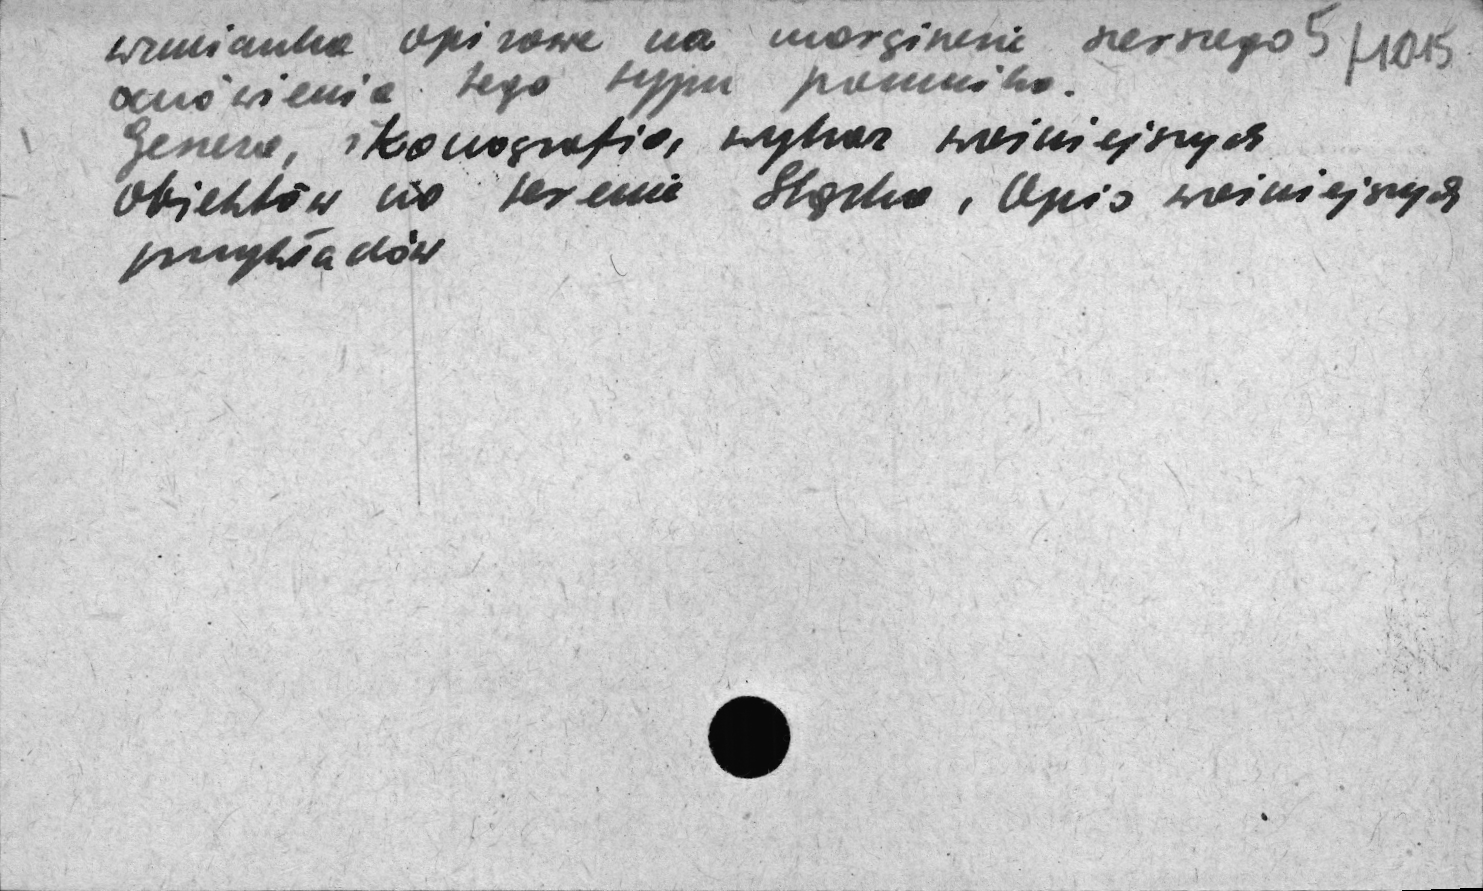 wzmianka opisowa na marginesie szerszego 5/1015
omówienia tego typu pomnika.
Geneza, ikonografia, wykaz ważniejszych
obiektów na terenie Śląska, Opis ważniejszych
przykładów